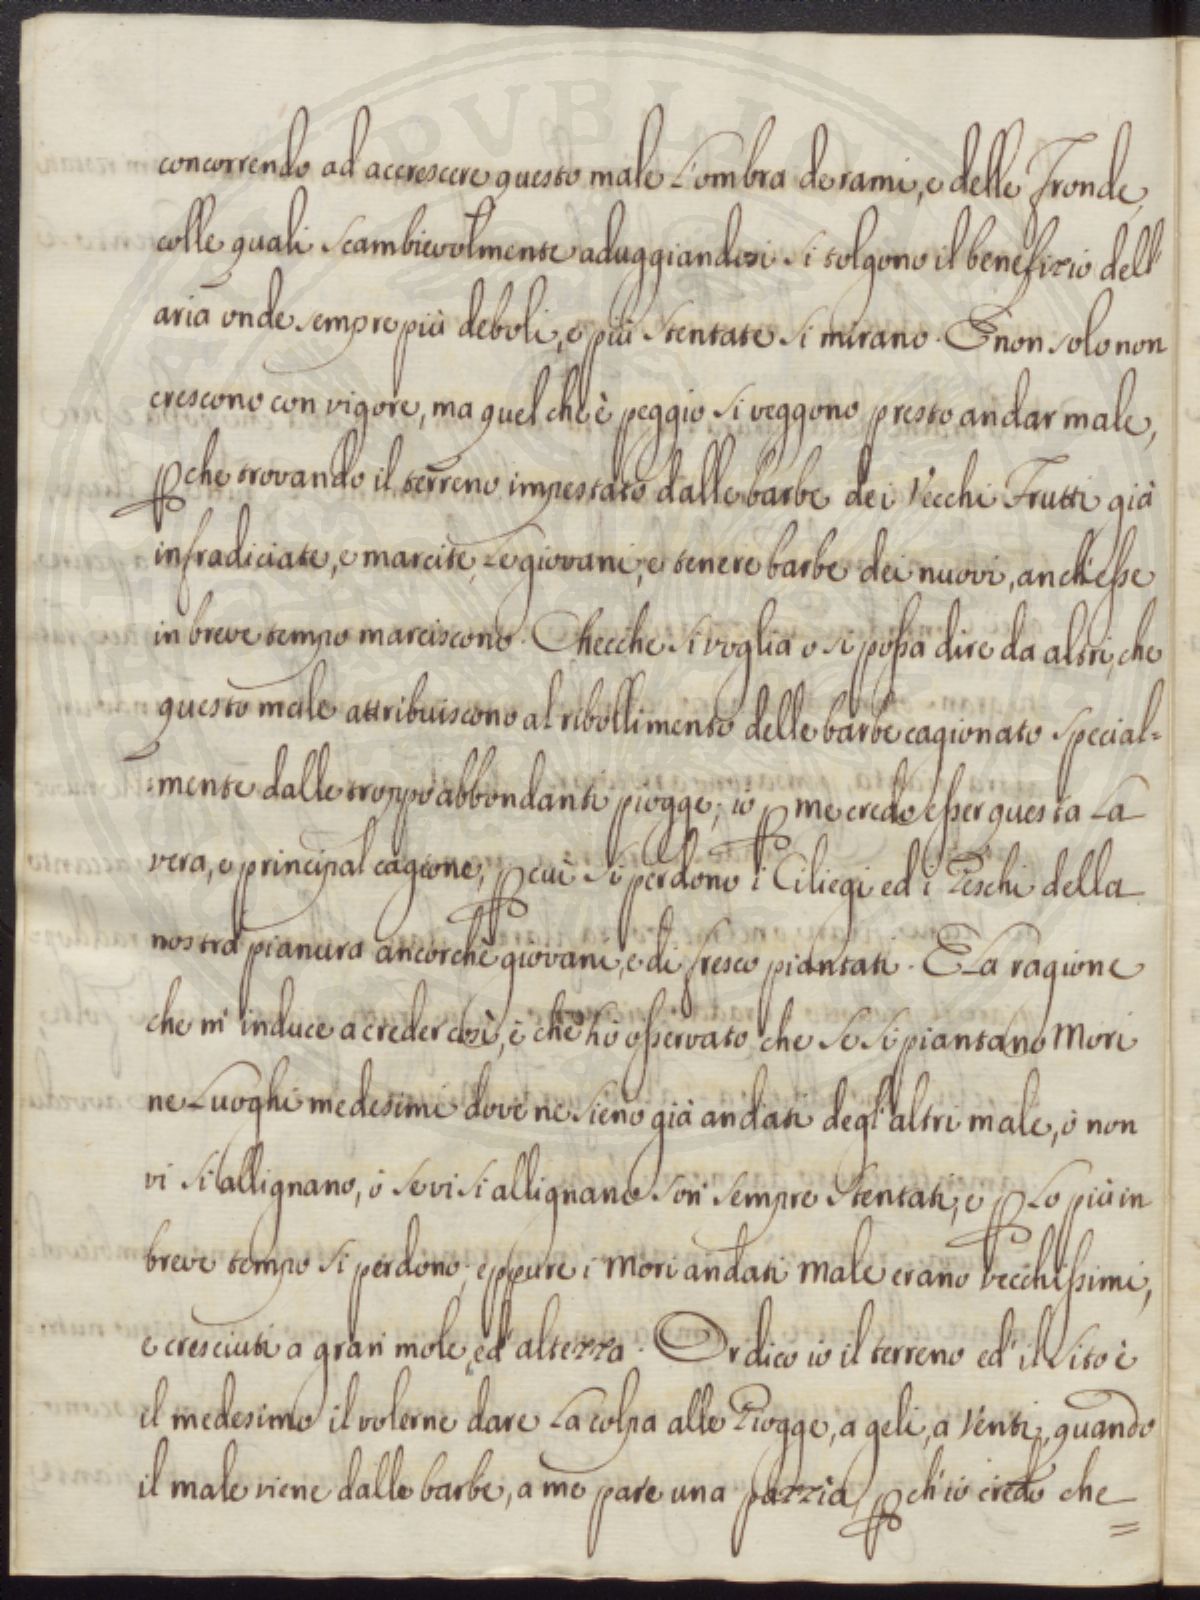 concorrendo ad accrescere questo male L'ombra de rami, e delle Fronde,
colle quali scambievolmente aduggiandosi si tolgono il benefizio dell'
aria onde sempre più deboli, e più stentate si mirano. E non solo non
crescono con vigore, ma quel che è peggio si veggono presto andar male,
pche trovando il terreno impestato dalle barbe dei Vecchi Frutti già
infradiciate, e marcite, Le giovani, e tenere barbe dei nuovi, anch'esse
in breve tempo marciscono. Checche si voglia o si possa dire da altri, che
questo male attribuiscono al ribollimento delle barbe cagionato special=
mente dalle troppo abbondanti piogge; io p me credo esser questa La
vera, e principal cagione, p cui si perdono i Ciliegi ed i Peschi della
nostra pianura ancorchè giovani, e di fresco piantati. E La ragione
che m' induce a creder così, è che hò osservato che se si piantano Mori
ne Luoghi medesimi dove ne sieno già andati degl'altri male, ò non
vi si allignano, ò se vi si allignano son' sempre stentati, e p Lo più in
breve tempo si perdono; eppure i Mori andati male erano vecchissimi,
e cresciuti a gran mole, ed' altezza. Or dico io il terreno ed' il sito è
il medesimo il volerne dare La colpa alle Piogge, a geli, a Venti, quando
il male viene dalle barbe, a me pare una pazzia, pch'io credo che